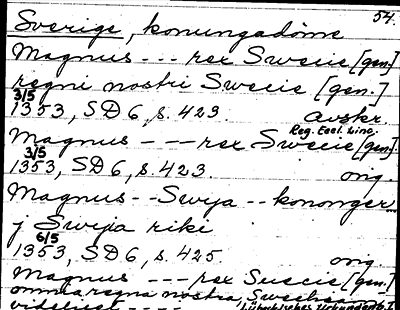 54.
Sverige, konungadöme
Magnus --- rex Swecie [gen.]
regni nostri Swecie [gen.]
3/5
1353, SD 6, s. 423. avskr.
Reg. Eccl. Linc.
Magnus --- rex Swecie [gen.]
3/5
1353, SD 6, s. 423. orig.
Magnus -- Swya -- kononger
j Swya riki
6/5
1353, SD 6, s. 425. orig.
Magnus --- rex Suecie [gen.]
omnia regna nostra,